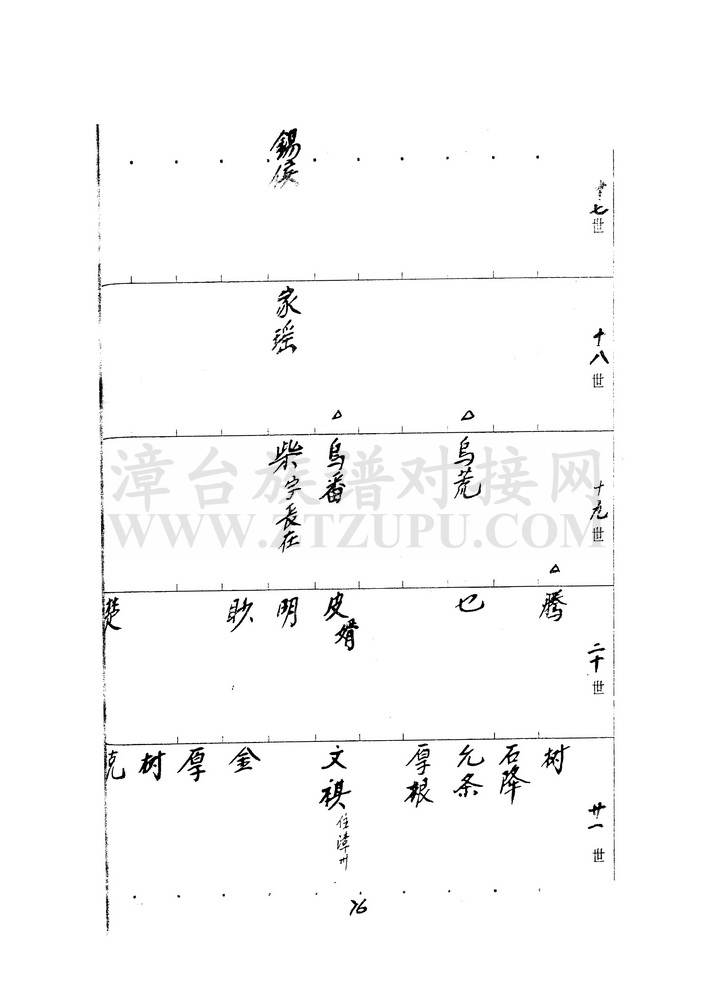 十七世
錫侯
十八世
家瑶
十九世
烏荒
烏番
柴字長在
二十世
騰
七
皮婿
明
眇
楚
廿一世
树
石降
允条
厚根
文祺住漳州
金
厚
树
克
76
漳台族谱对接网
WWW.ZTZUPU.COM